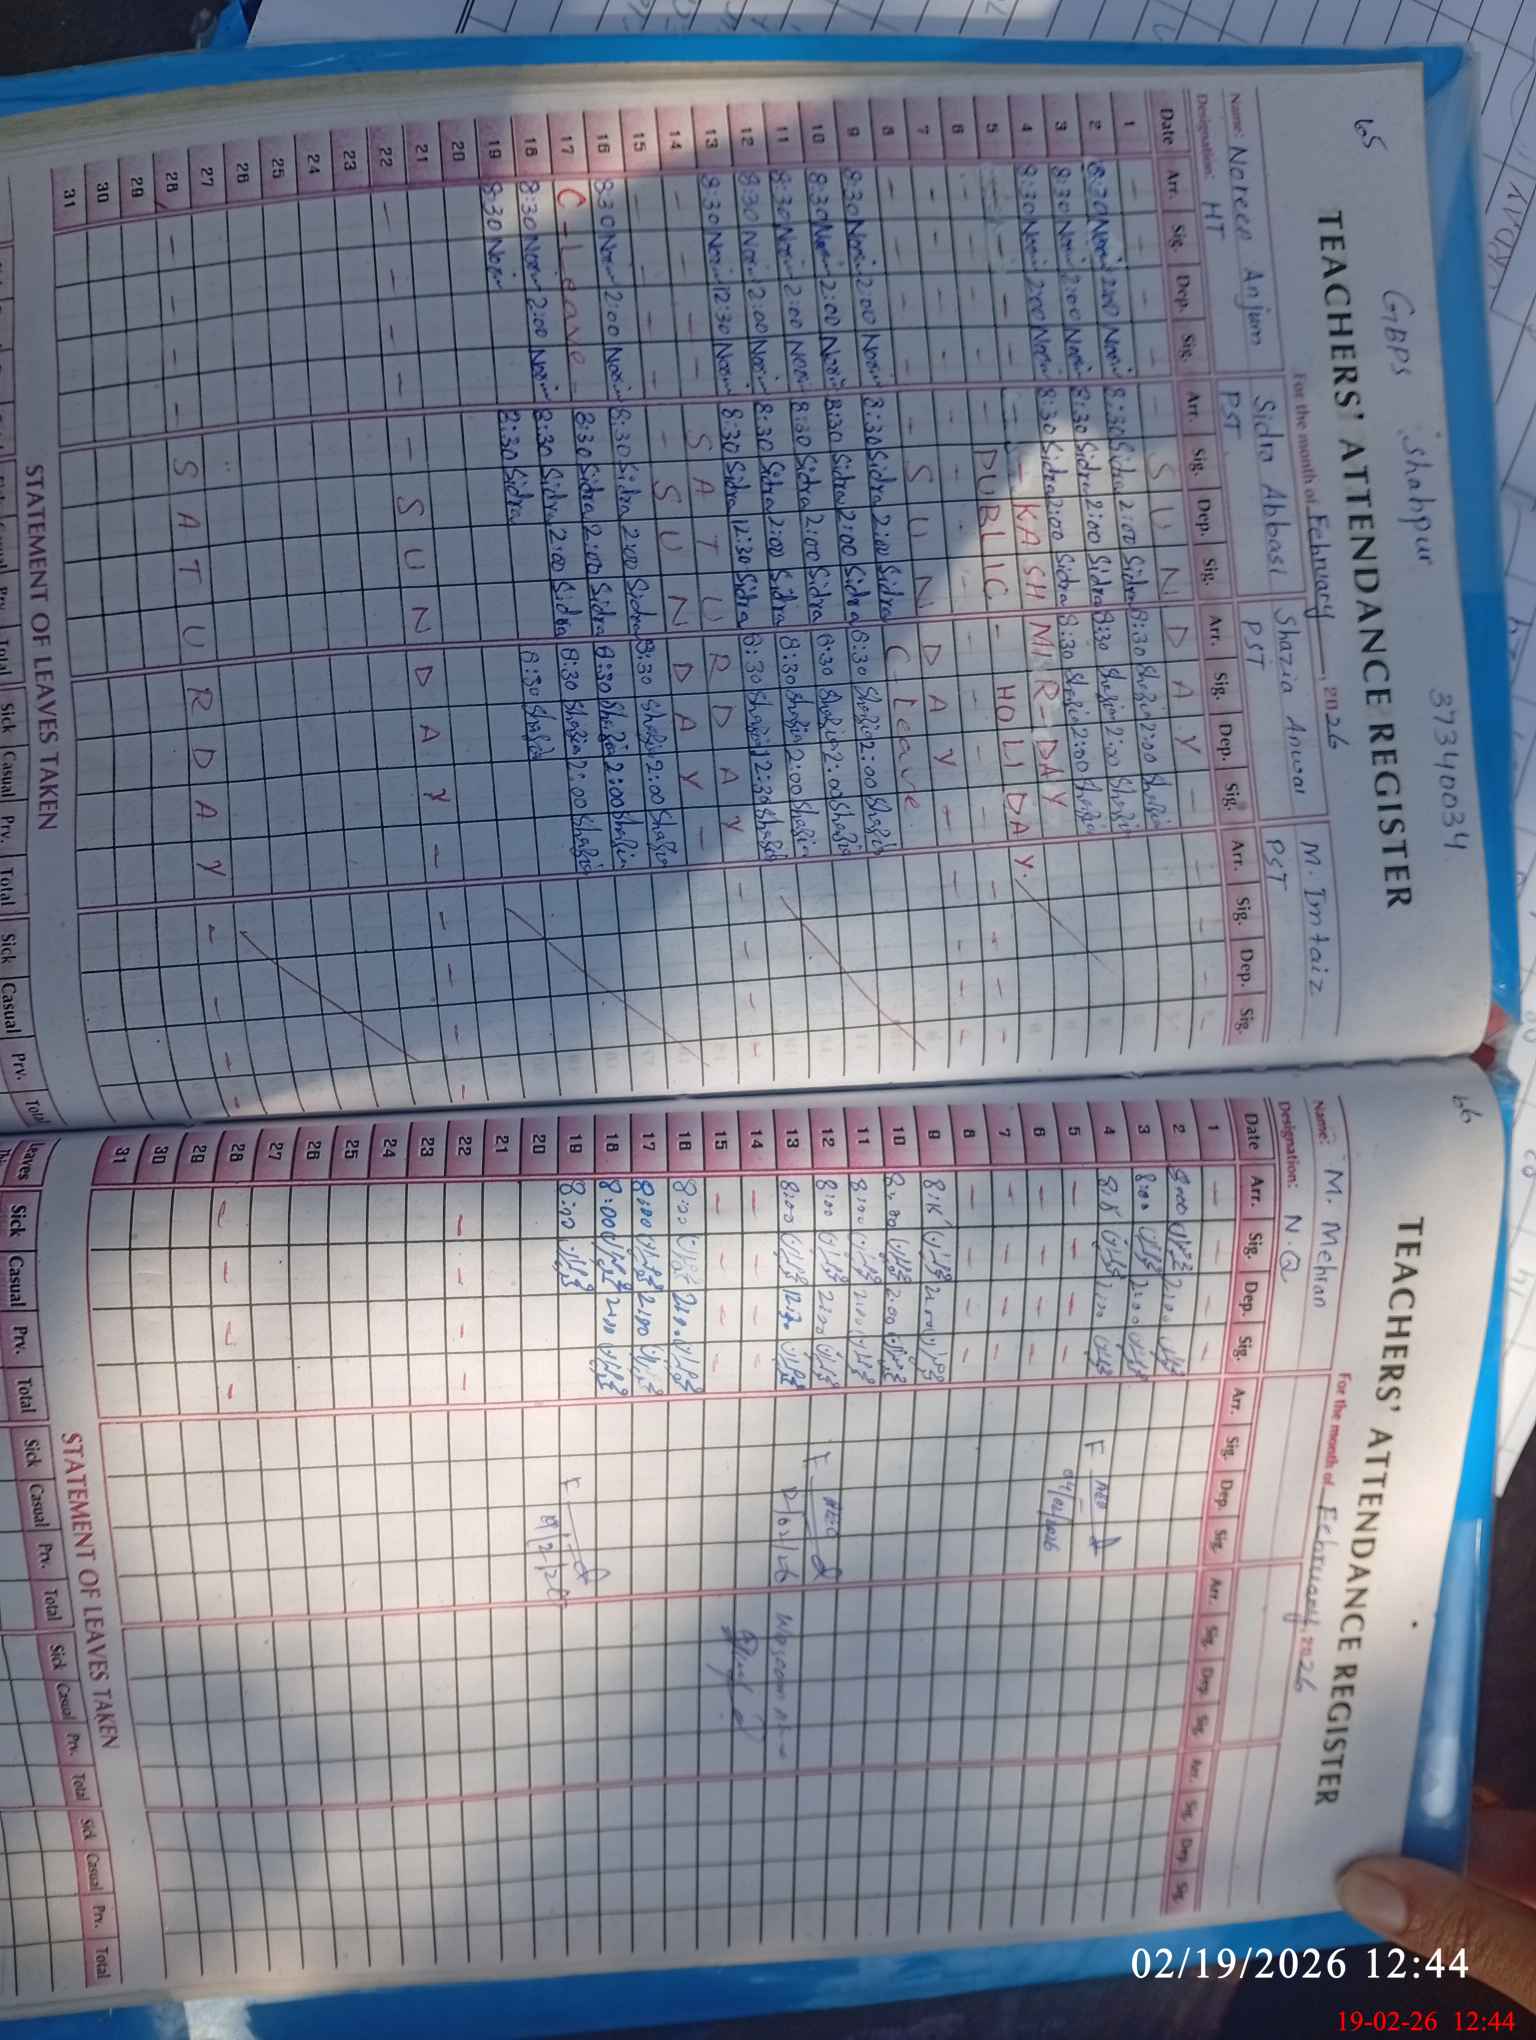 65
GBPS Shahpur 37340034
TEACHERS' ATTENDANCE REGISTER
For the month of February, 2026
Name: Noreen Anjum Sidra Abbasi Shazia Anwar M. Imtaiz
Designation: HT PST PST PST
Date Arr. Sig. Dep. Sig. Arr. Sig. Dep. Sig. Arr. Sig. Dep. Sig. Arr. Sig. Dep. Sig.
1 - - - - - S U N D A Y - - - - -
2 8:30 Noorin 2:00 Noorin 8:30 Sidra 2:00 Sidra 8:30 Shazia 2:00 Shazia
3 8:30 Noorin 2:00 Noorin 8:30 Sidra 2:00 Sidra 8:30 Shazia 2:00 Shazia
4 8:30 Noorin 2:00 Noorin 8:30 Sidra 2:00 Sidra 8:30 Shazia 2:00 Shazia
5 - - - - - KASHMIR-DAY
6 - - - - - PUBLIC - HOLIDAY.
7 - - - -
8 - - - - - S U N D A Y - - - - -
9 8:30 Noorin 2:00 Noorin 8:30 Sidra 2:00 Sidra C leave
10 8:30 Noorin 2:00 Noorin 8:30 Sidra 2:00 Sidra 8:30 Shazia 2:00 Shazia
11 8:30 Noorin 2:00 Noorin 8:30 Sidra 2:00 Sidra 8:30 Shazia 2:00 Shazia
12 8:30 Noorin 2:00 Noorin 8:30 Sidra 2:00 Sidra 8:30 Shazia 2:00 Shazia
13 8:30 Noorin 12:30 Noorin 8:30 Sidra 12:30 Sidra 8:30 Shazia 12:30 Shazia
14 - - - - S A T U R D A Y - - - -
15 - - - - - S U N D A Y -
16 8:30 Noorin 2:00 Noorin 8:30 Sidra 2:00 Sidra 8:30 Shazia 2:00 Shazia
17 C - Leave - 8:30 Sidra 2:00 Sidra 8:30 Shazia 2:00 Shazia
18 8:30 Noorin 2:00 Noorin 8:30 Sidra 2:00 Sidra 8:30 Shazia 2:00 Shazia
19 8:30 Noorin 8:30 Sidra 8:30 Shazia
20
21
22 - - - - - S U N D A Y - - - - -
23
24
25
26
27
28 - - - - S A T U R D A Y - - - -
29
30
31
STATEMENT OF LEAVES TAKEN
Total Sick Casual Prv. Total Sick Casual Prv. Total
66
TEACHERS' ATTENDANCE REGISTER
For the month of February, 2026
Name: M. Mehran
Designation: N.Q
Date Arr. Sig. Dep. Sig. Arr. Sig. Dep. Sig. Arr. Sig. Dep. Sig. Arr. Sig. Dep. Sig.
1 - - - -
2 8:00 2:00
3 8:00 2:00
4 8:15 2:00
04/02/2026
5 - - - -
6 - - - -
7 - - - -
8 - - - -
9 8:15 2:00
10 8:00 2:00
11 8:00 2:00
12 8:00 2:00
13 8:00 12:30
14 - - - -
15 - - - -
16 8:00 2:00
17 8:00 2:00
18 8:00 2:00
19 8:00
20
21
22 - - - -
23
24
25
26
27
28 - - - -
29
30
31
STATEMENT OF LEAVES TAKEN
Leaves Sick Casual Prv. Total Sick Casual Prv. Total Sick Casual Prv. Total Sick Casual Prv. Total
02/19/2026 12:44
19-02-26 12:44